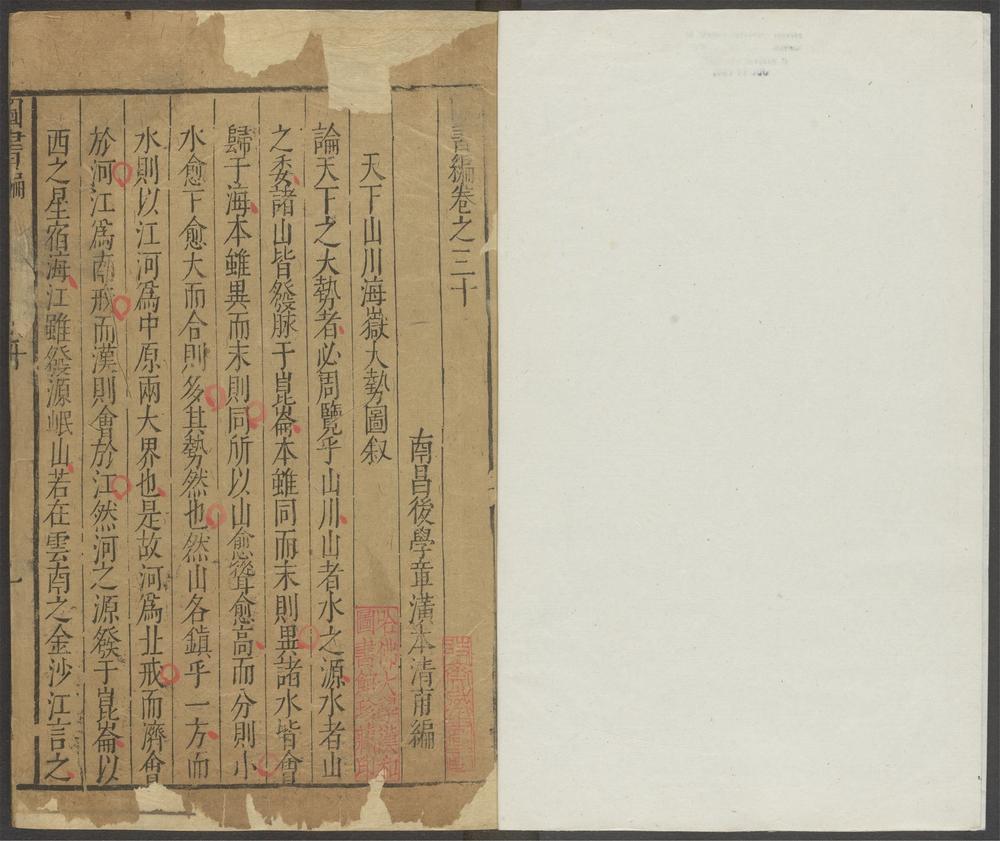 書編卷之三十
南昌後學章潢本清甫編
天下山川海嶽大勢圖叙
論天下之大勢者必周覽乎山川山者水之源水者山
之委諸山皆發脉于崑崙本雖同而末則異諸水皆會
歸于海本雖異而末則同所以山愈聳愈高而分則小
水愈下愈大而合則多其勢然也然山各鎮乎一方而
水則以江河爲中原兩大界也是故河爲北戒而濟會
於河江爲南戒而漢則會於江然河之源發于崑崙以
西之星宿海江雖發源岷山若在雲南之金沙江言之
圖書編
哈佛大學漢和
圖書館珍藏印